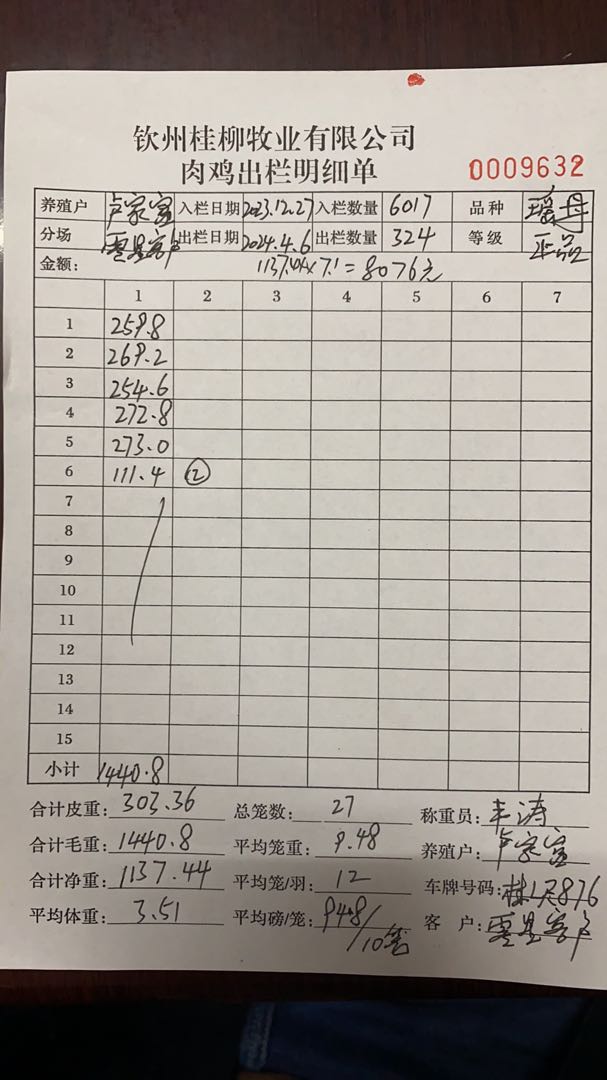 钦州桂柳牧业有限公司
肉鸡出栏明细单 0009632
养殖户 卢家富 入栏日期 2023.12.27 入栏数量 6017 品种 瑶丹
分场 零星客户 出栏日期 2024.4.6 出栏数量 324 等级 正品
金额: 1137.44×7.1=8076元
1 2 3 4 5 6 7
1 259.8
2 269.2
3 254.6
4 272.8
5 273.0
6 111.4 ②
7
8
9
10
11
12
13
14
15
小计 1440.8
合计皮重: 303.36 总笼数: 27 称重员: 涛
合计毛重: 1440.8 平均笼重: 9.48 养殖户: 卢家富
合计净重: 1137.44 平均笼/羽: 12 车牌号码: 876
平均体重: 3.51 平均磅/笼: 94.8/10笼 客户: 零星客户